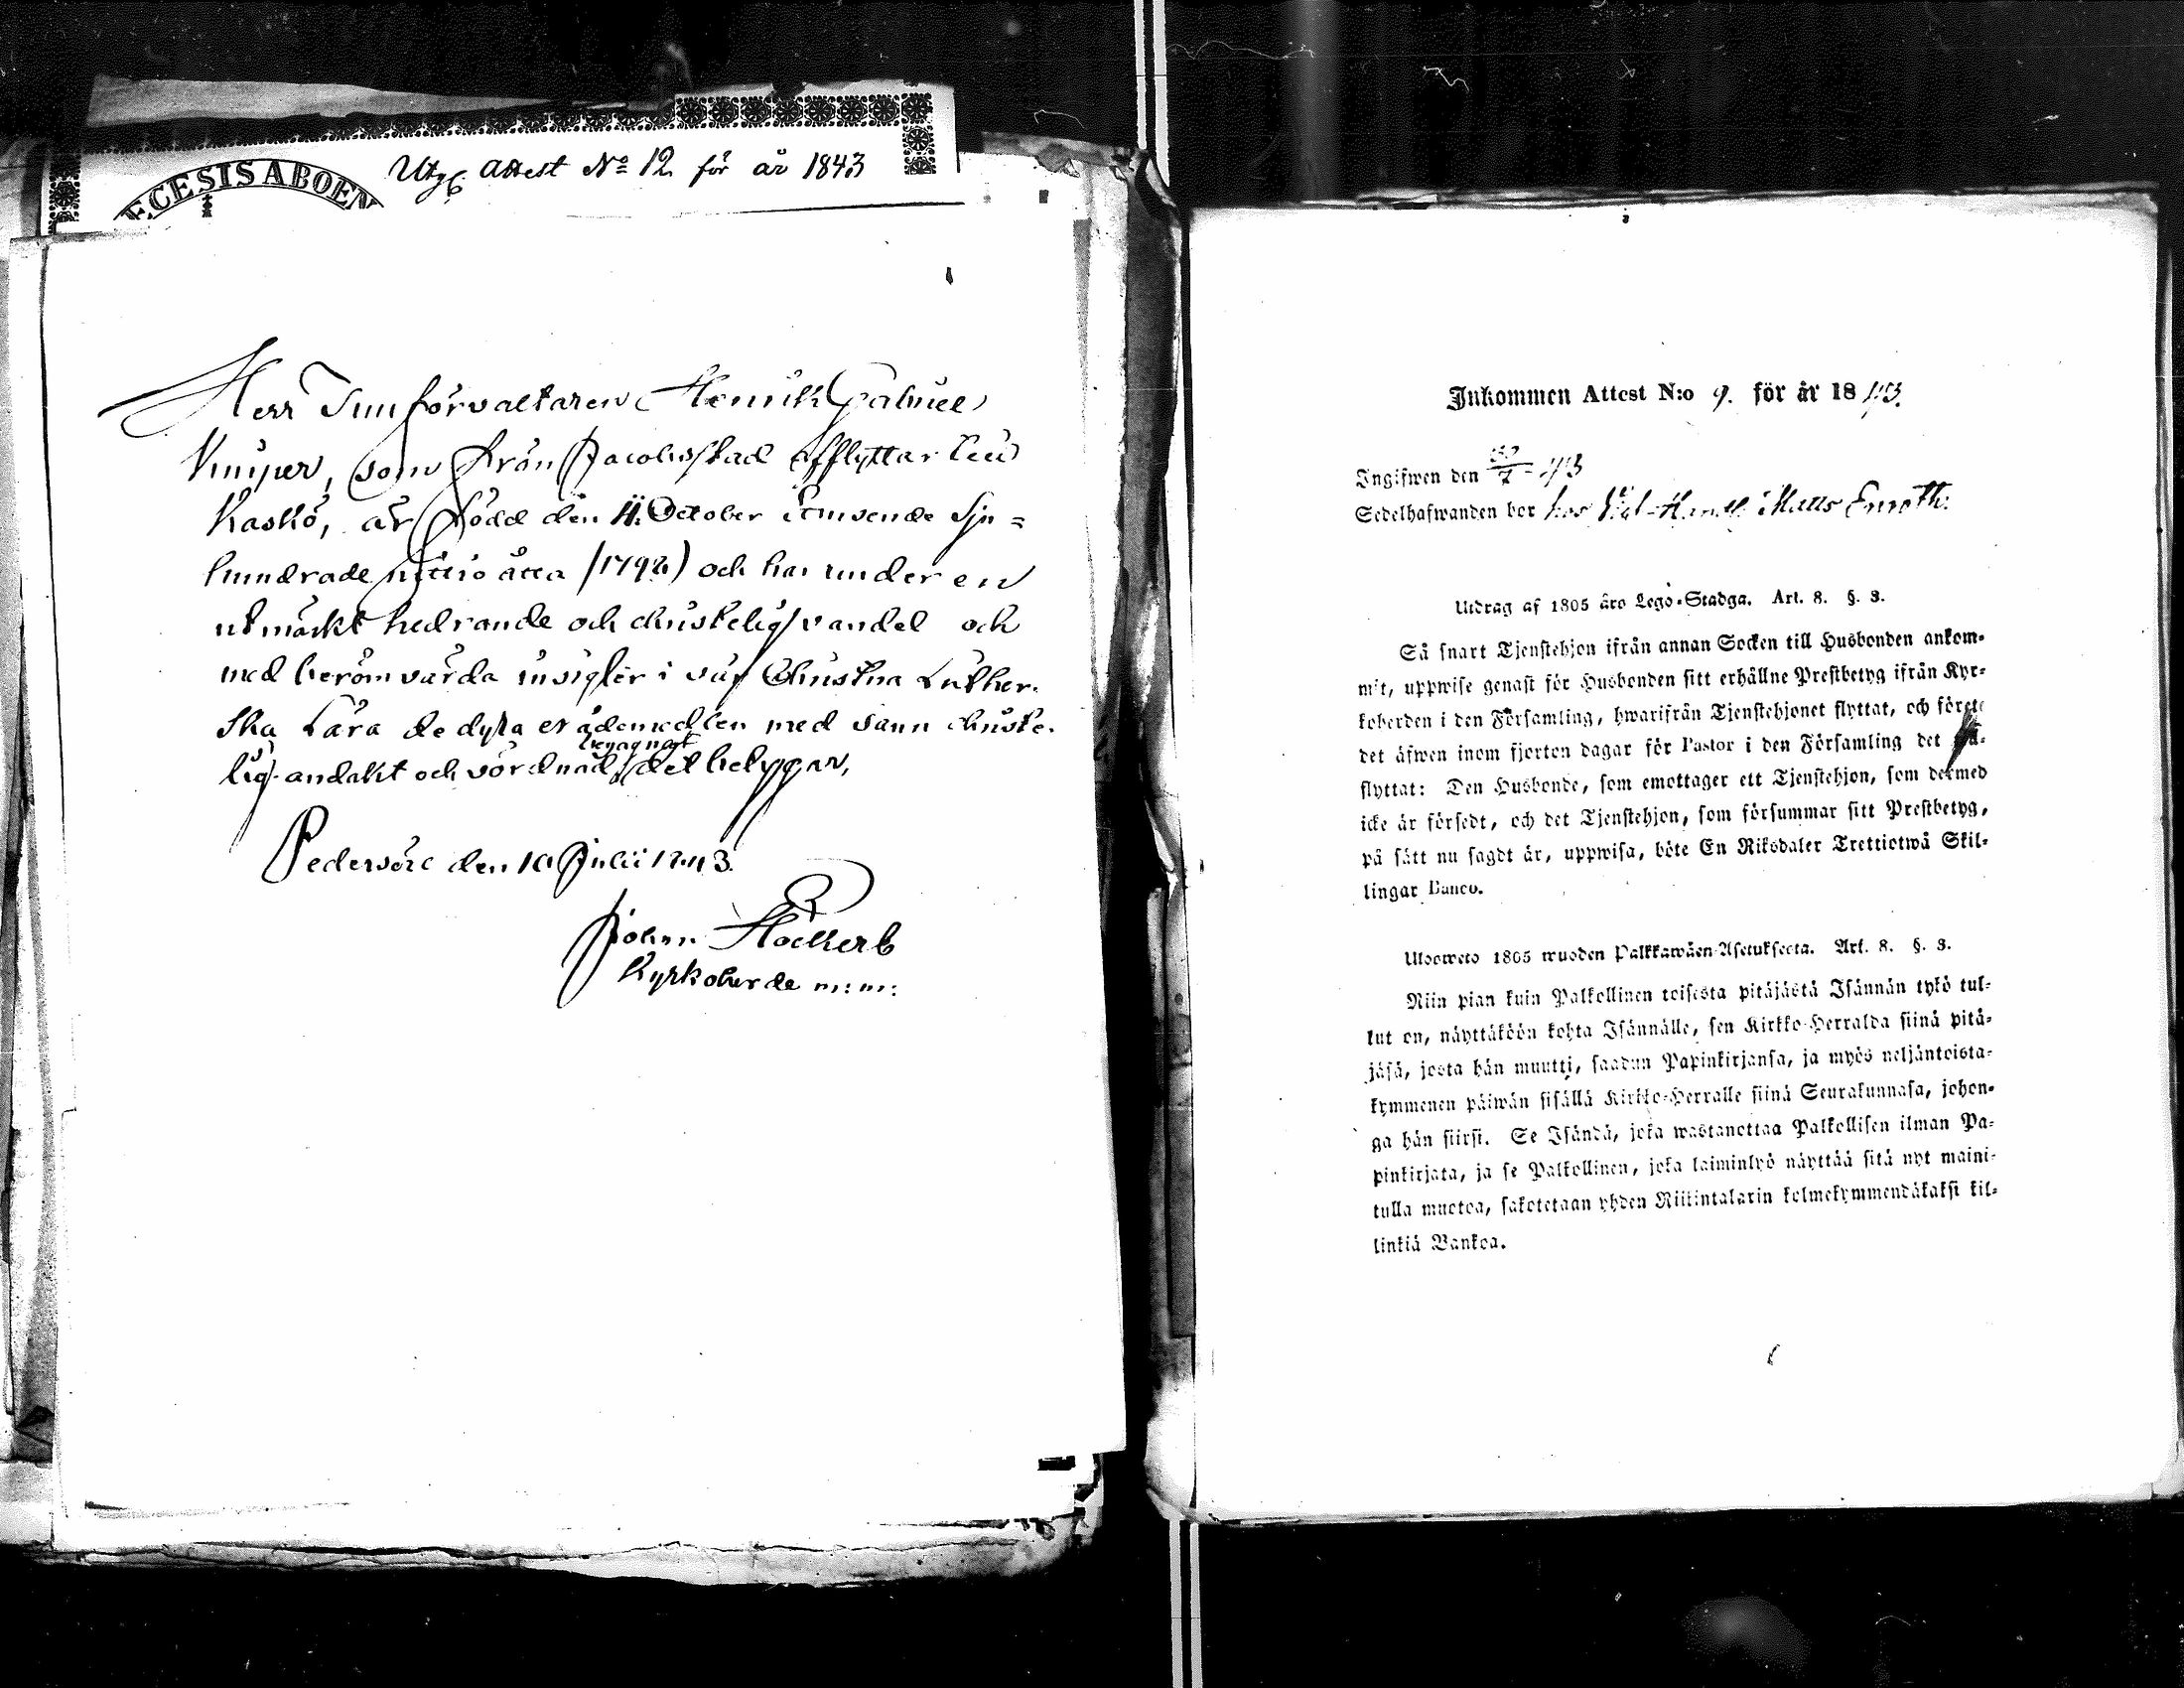 ECESIS ABOEN
Utg. Attest No 12 för år 1843
Herr Tullförvaltaren Henrik Gabriel
som från Jacobsstad afflyttar till
Kaskö, är född den 11 October Ettusende sju=
hundrade nittio åtta (1798) och har under en
utmärkt hedrande och christelig vandel och
med berömvärda insigter i vår Christna Luther-
ska Lära de dyra nådemedlen med sann christe-
begagnat
lig andakt och vördnad det betygar,
Pedersöre den 10 Julii 1843.
Johan
Kyrkoherde m:m:
Inkommen Attest N:o 9. för år 1843.
Ingifwen den 7 - 43
Sedelhafwanden bor hos Matts Enroth.
Utdrag af 1805 års Lego-Stadga. Art. 8. §. 3.
Så snart Tjenstehjon ifrån annan Socken till Husbonden ankom-
mit, uppwise genast för Husbonden sitt erhållne Prestbetyg ifrån Kyr-
koherden i den Församling, hwarifrån Tjenstehjonet flyttat, och förete
det äfwen inom fjorton dagar för Pastor i den Församling det
flyttat: Den Husbonde, som emottager ett Tjenstehjon, som dermed
icke är försedt, och det Tjenstehjon, som försummar sitt Prestbetyg,
på sätt nu sagdt är, uppwisa, böte En Riksdaler Trettiotwå Skil-
lingar Banco.
Ulosweto 1805 wuoden Palkkawäen-Asetuksesta. Art. 8. §. 3.
Niin pian kuin Palkollinen toisesta pitäjästä Isännän tykö tul-
lut on, näyttäköön kohta Isännälle, sen Kirkko-Herralda siinä pitä-
jäsä, josta hän muutti, saadun Papinkirjansa, ja myös neljäntoista-
kymmenen päiwän sisällä Kirkko-Herralle siinä Seurakunnasa, johon-
ga hän siirsi. Se Isändä, joka wastanottaa Palkollisen ilman Pa-
pinkirjata, ja se Palkollinen, joka laiminlyö näyttää sitä nyt maini-
tulla muotoa, sakotetaan yhden Riikintalarin kolmekymmendäkaksi kil-
linkiä Bankoa.